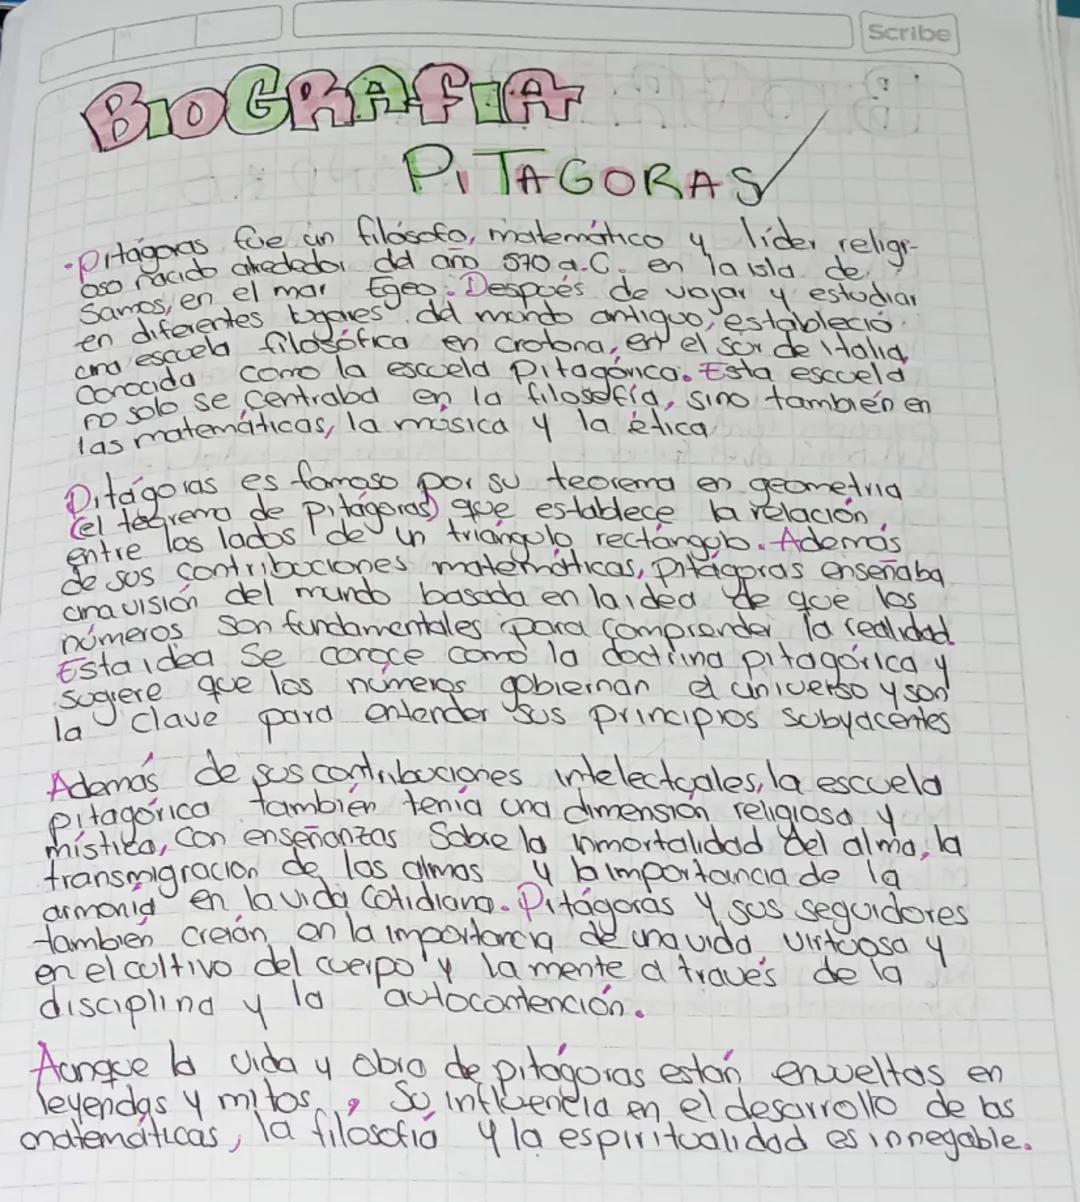 Scribe
BIOGRAFIA
PITAGORAS
·Pitágoras fue un filósofo, matemático y líder religi-
oso nacido alrededor del año 570 a.C. en la isla de
Samos, en el mar Egeo. Después de viajar y estudiar
en diferentes lugares del mundo antiguo, estableció
una escuela filosófica en Crotona, en el sur de Italia,
Conocida como la escuela Pitagórica. Esta escuela
no solo se centraba en la filosofía, sino también en
las matemáticas, la música y la ética
Pitágoras es famoso por su teorema en geometria
(el teorema de Pitágoras) que establece la relación
entre los lados de un triángulo rectángulo. Además
de sus contribuciones matemáticas, Pitágoras enseñaba
una visión del mundo basada en la idea de que los
números son fundamentales para comprender la realidad.
Esta idea se conoce como la doctrina pitagórica y
sugiere que los números gobiernan el universo y son
la clave para entender sus principios subyacentes
Además de sus contribuciones intelectuales, la escuela
pitagórica también tenía una dimensión religiosa y
mística, con enseñanzas Sobre la inmortalidad del alma, la
transmigración de las almas y la importancia de la
armonía en la vida cotidiana. Pitágoras y sus seguidores
también creían en la importancia de una vida virtuosa y
en el cultivo del cuerpo y la mente a través de la
disciplina y la autocontención.
Aunque la vida y obra de pitágoras están envueltas en
leyendas y mitos, Su influencia en el desarrollo de las
matemáticas, la filosofía y la espiritualidad es innegable.